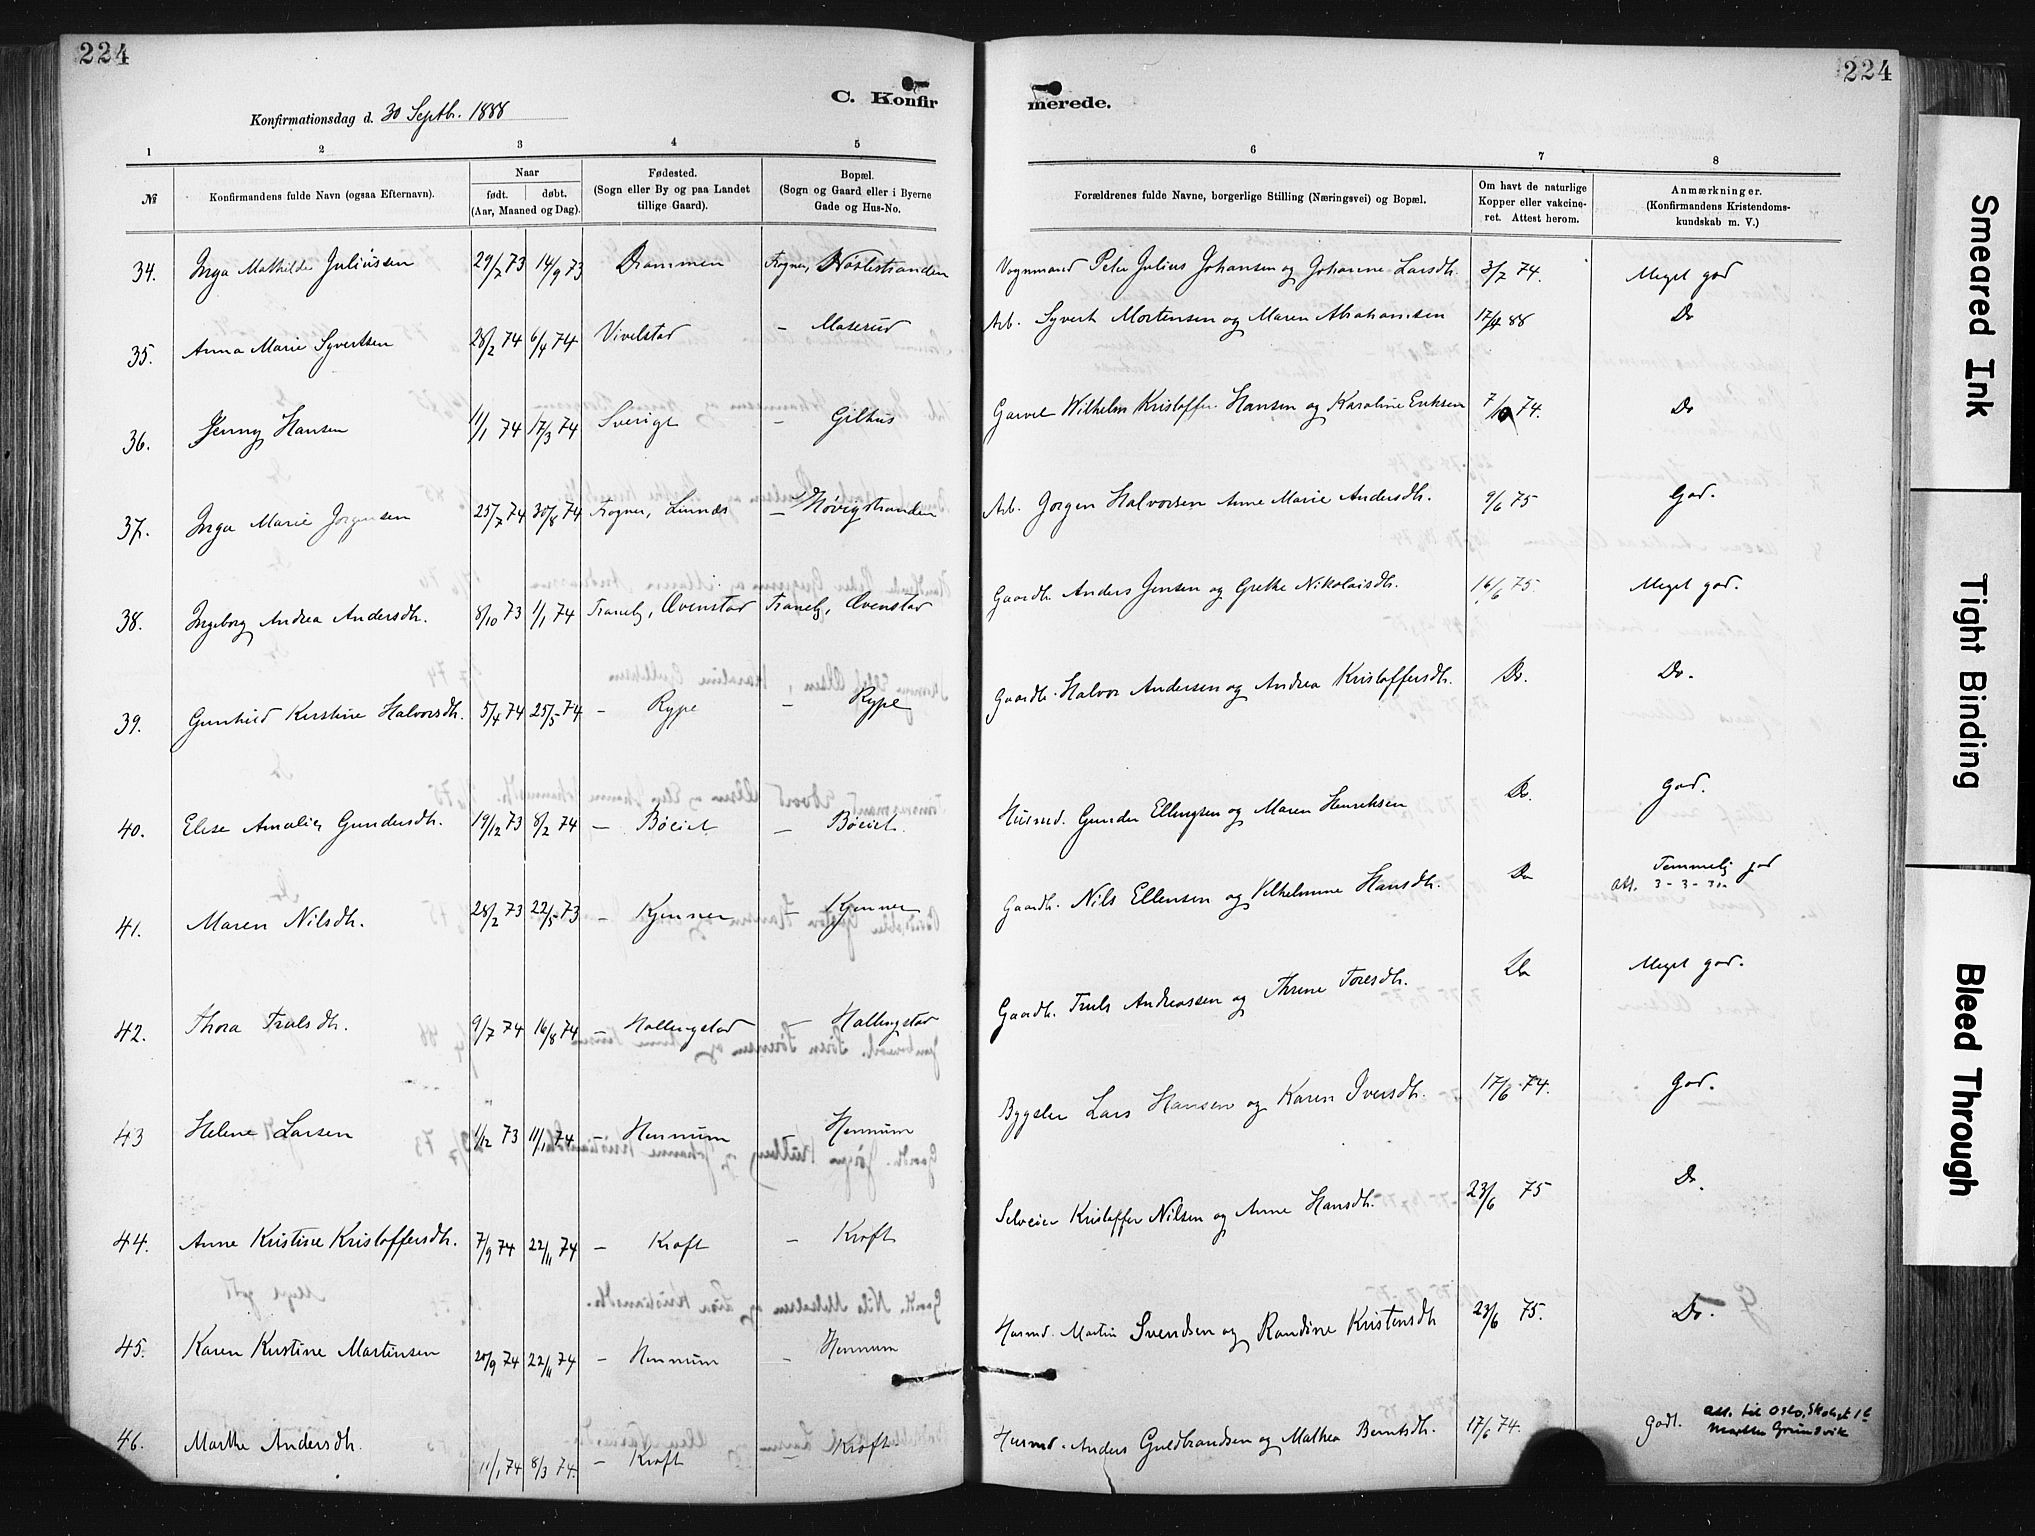 224
224
C. Konfir
merede.
Konfirmationsdag d. 30 Septbr. 1888
1 2 3 4 5 6 7 8
№ Konfirmandens fulde Navn (ogsaa Efternavn). Naar født. døbt. (Aar, Maaned og Dag). Fødested. (Sogn eller By og paa Landet tillige Gaard). Bopæl. (Sogn og Gaard eller i Byerne Gade og Hus-No. Forældrenes fulde Navne, borgerlige Stilling (Næringsvei) og Bopæl. Om havt de naturlige Kopper eller vakcineret. Attest herom. Anmærkninger. (Konfirmandens Kristendomskundskab m. V.)
34. Inga Mathilde Juliussen 29/7 73 14/9 73 Drammen Frogner, Nøstestranden Vognmand Peter Julius Johansen og Johanne Larsdtr. 3/7 74. Meget god
35. Anna Marie Syvertsen 28/2 74 6/4 74 Vivelstad – Maserud Arb. Syvert Mortensen og Maren Abrahamsen 17/4 88 Do
36. Jenny Hansen 11/1 74 17/3 74 Sverige – Gilhus Garver Wilhelm Kristoffer Hansen og Karoline Eriksen 7/10 74. Do
37. Inga Marie Jørgensen 25/7 74 30/8 74 Frogner, Linnæs – Nøvigstranden Arb. Jørgen Halvorsen Anne Marie Andersdtr. 9/6 75 God.
38. Ingeborg Andrea Andersdtr. 8/10 73 1/1 74 Tranby, Øvenstad Tranby, Øvenstad Gaardbr. Anders Jensen og Grethe Nikolaisdtr. 16/6 75. Meget god.
39. Gunhild Kirstine Halvorsdtr. 5/4 74 25/5 74 – Rype – Rype Gaardbr. Halvor Andersen og Andrea Kristoffersdtr. Do. Do.
40. Elise Amalie Gundersdtr. 19/12 73 8/2 74 – Bøeiet – Bøeiet. Husmd. Gunder Ellingsen og Maren Henriksen Do. God.
41. Maren Nilsdtr. 28/2 73 22/5 73 – Kjenner – Kjenner Gaardbr. Nils Ellensen og Vilhelmine Hansdtr. Do Temmelig god
att. 3-3-31
42. Thora Trulsdtr. 9/7 74 16/8 74 – Hallingstad – Hallingstad Gaardbr. Truls Andreassen og Thrine Toresdtr. Do Meget god.
43 Helene Larsen 1/12 73 11/1 74 – Hennum Hennum Bygsler Lars Hansen og Karen Iversdtr. 17/6 74. God.
44. Anne Kristine Kristoffersdtr. 7/9 74 22/11 74 – Kroft – Kroft Selveier Kristoffer Nilsen og Anne Hansdtr. 23/6 75 Do.
45. Karen Kristine Martinsen 20/9 74 22/11 74 – Hennum – Hennum Husmd. Martin Svendsen og Randine Kristensdtr 23/6 75. Do.
46. Marthe Andersdtr. 11/1 74 8/3 74. – Kroft – Kroft Husmd. Anders Guldbrandsen og Mathea Berntsdtr. 17/6 74. Godt. att. til Oslo,
Marthe Grunsvik
Smeared Ink
Tight Binding
Bleed Through